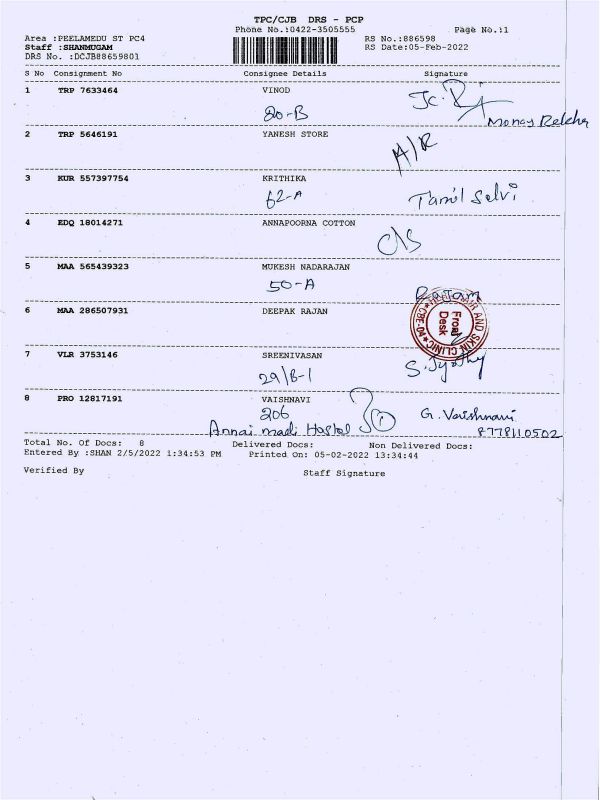 TPC/CJB DRS - PCP
Phone No.:0422-3505555 Page No.:1
Area :PEELAMEDU ST PC4 RS No.:886598
Staff :SHANMUGAM RS Date:05-Feb-2022
DRS No. :DCJB88659801
S No Consignment No Consignee Details Signature
1 TRP 7633464 VINOD
80-B
2 TRP 5646191 YANESH STORE
A/R
3 KUR 557397754 KRITHIKA
62-A Tamil Selvi
4 EDQ 18014271 ANNAPOORNA COTTON
C/S
5 MAA 565439323 MUKESH NADARAJAN
50-A Rajam
6 MAA 286507931 DEEPAK RAJAN
HAIR AND SKIN CLINIC CBE-04
Front Desk
7 VLR 3753146 SREENIVASAN
29/B-1 S. Jyothy
8 PRO 12817191 VAISHNAVI
206 G. Vaishnavi
Annai madi Hostal 8778110502
Total No. Of Docs: 8 Delivered Docs: Non Delivered Docs:
Entered By :SHAN 2/5/2022 1:34:53 PM Printed On: 05-02-2022 13:34:44
Verified By Staff Signature